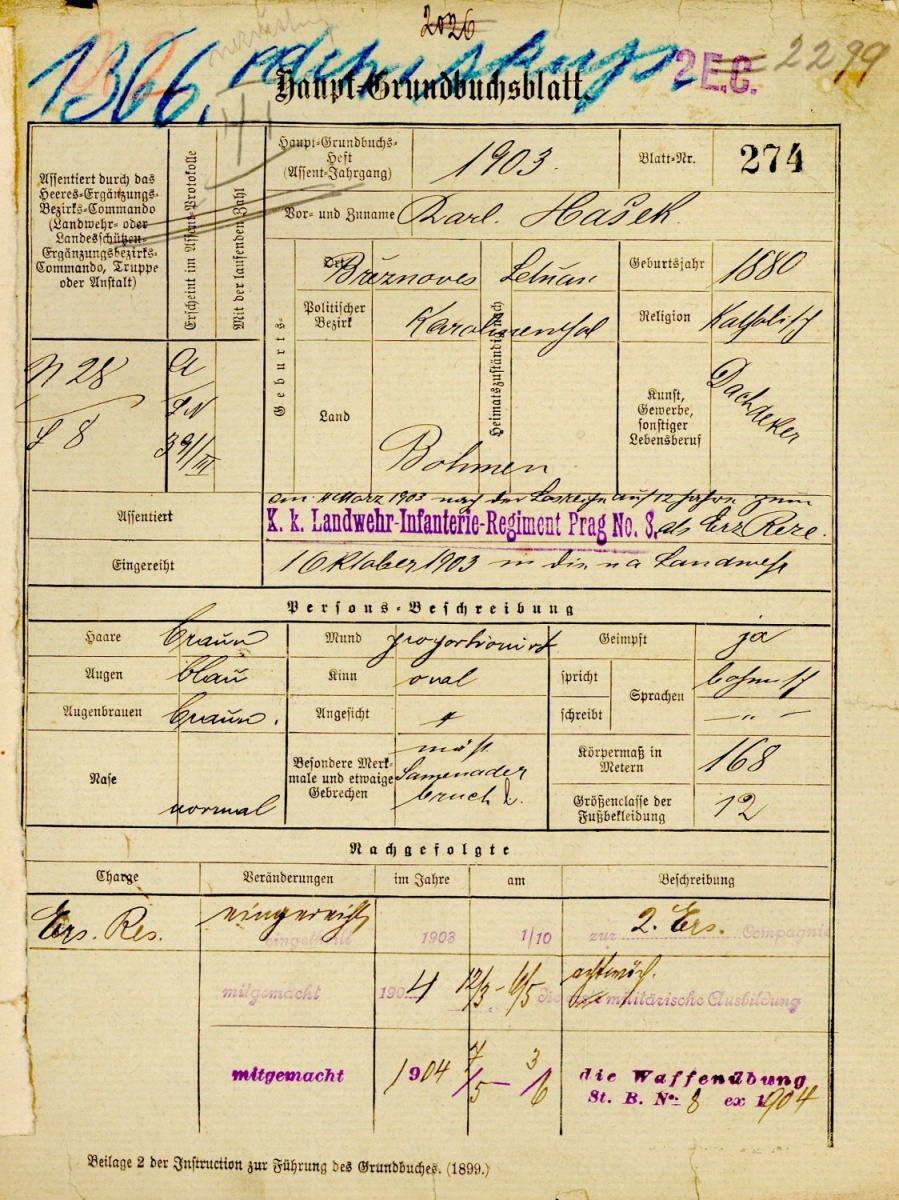 2026
1366.
2 E.C. 2299
Haupt-Grundbuchsblatt
Assentiert durch das
Heeres-Ergänzungs-
Bezirks-Commando
(Landwehr- oder
Landesschützen-
Ergänzungsbezirks-
Commando, Truppe
oder Anstalt)
Erscheint im Assent-Protokolle
Mit der laufenden Zahl
Haupt-Grundbuchs-
Heft
(Assent-Jahrgang)
1903.
Blatt-Nr.
274
Vor- und Zuname Karl Hašek.
Geburts-
Ort Březnoves
Politischer
Bezirk
Karolinenthal
Land
Böhmen
Heimatszuständig nach
Letňan
Geburtsjahr 1880
Religion Katholisch
Kunst,
Gewerbe,
sonstiger
Lebensberuf
Dachdeker
N 28
L 8
A
LN
39/III
Assentiert
am 4 März 1903 nach der Losreihe auf 12 Jahre zum
K. k. Landwehr-Infanterie-Regiment Prag No. 8. als Erz Rere.
Eingereiht
1 Oktober 1903 in die n a Landwehr
Persons-Beschreibung
Haare braun
Augen blau
Augenbrauen braun.
Nase normal
Mund proportionirt
Kinn oval
Angesicht "
Besondere Merk-
male und etwaige
Gebrechen
mäß.
Samenader
bruch l.
Geimpft ja
spricht
schreibt
Sprachen
böhmisch
— „ —
Körpermaß in
Metern
168
Größenclasse der
Fußbekleidung
12
Nachgefolgte
Charge Veränderungen im Jahre am Beschreibung
Ers. Res. eingereiht
eingetheilt 1903 1/10 zur 2. Ers. Compagnie
achtwöch.
mitgemacht 1904 12/3 - 6/5 die militärische Ausbildung
mitgemacht 1904 7/5 - 3/6 die Waffenübung
St. B. No. 8 ex 1904
Beilage 2 der Instruction zur Führung des Grundbuches. (1899.)